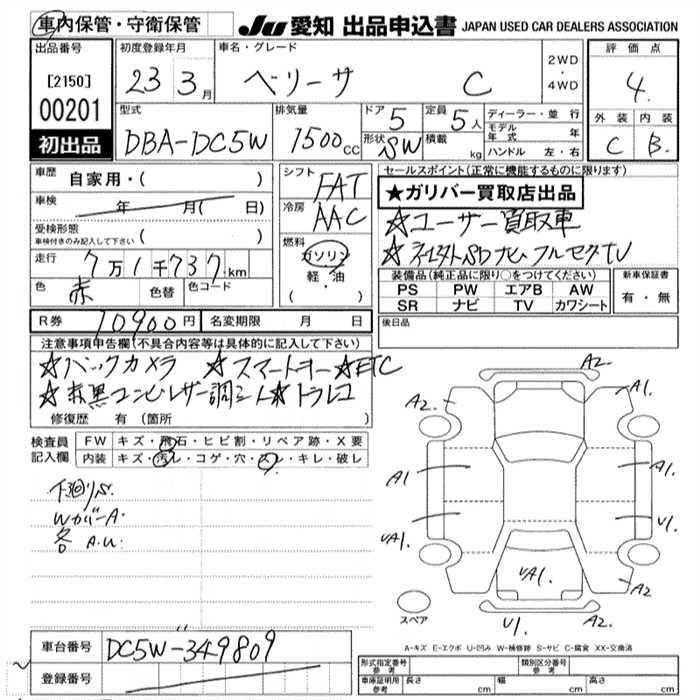 車内保管・守衛保管 JU 愛知 出品申込書 JAPAN USED CAR DEALERS ASSOCIATION
出品番号 初度登録年月 車名・グレード 評価点
[2150] 23 3月 ベリーサ C 2WD・4WD 4
00201
初出品
型式 排気量 ドア 5 定員 5人 ディーラー・並行 外装 内装
DBA-DC5W 1500cc 形状 SW 積載 kg モデル年式 年 C B
ハンドル 左・右
車歴 自家用・( ) シフト FAT セールスポイント(正常に機能するものに限ります)
★ガリバー買取店出品
車検 年 月( 日) 冷房 AAC
☆ユーザー買取車
受検形態 ( )
車検付きのみ記入して下さい
燃料 ガソリン 軽・油 ( ・ )
☆社外SDナビフルセグTV
走行 7万1千737km
装備品(純正品に限り○をつけてください) 新車保証書
色 赤 色替 色コード
PS PW エアB AW 有・無
SR ナビ TV カワシート
R券 10900円 名変期限 月 日 後日品
注意事項申告欄(不具合内容等は具体的に記入して下さい)
☆バックカメラ ☆スマートキー☆ETC
☆赤黒コンビレザー調シート☆ドラレコ
修復歴 有 (箇所 )
検査員記入欄 FW キズ・飛石・ヒビ割・リペア跡・X要
内装 キズ・汚レ・コゲ・穴・スレ・キレ・破レ
下廻りS.
WカバーA.
各 A.U.
A2.
A2. A1.
A1 A1.
UA1. U1.
UA1. A2
U1.
スペア
A-キズ E-エクボ U-凹み W-補修跡 S-サビ C-腐食 XX-交換済
車台番号 DC5W-349809
登録番号
形式指定番号 参考 類別区分番号 参考
車庫証明用 参考 長さ cm 幅 cm 高さ cm